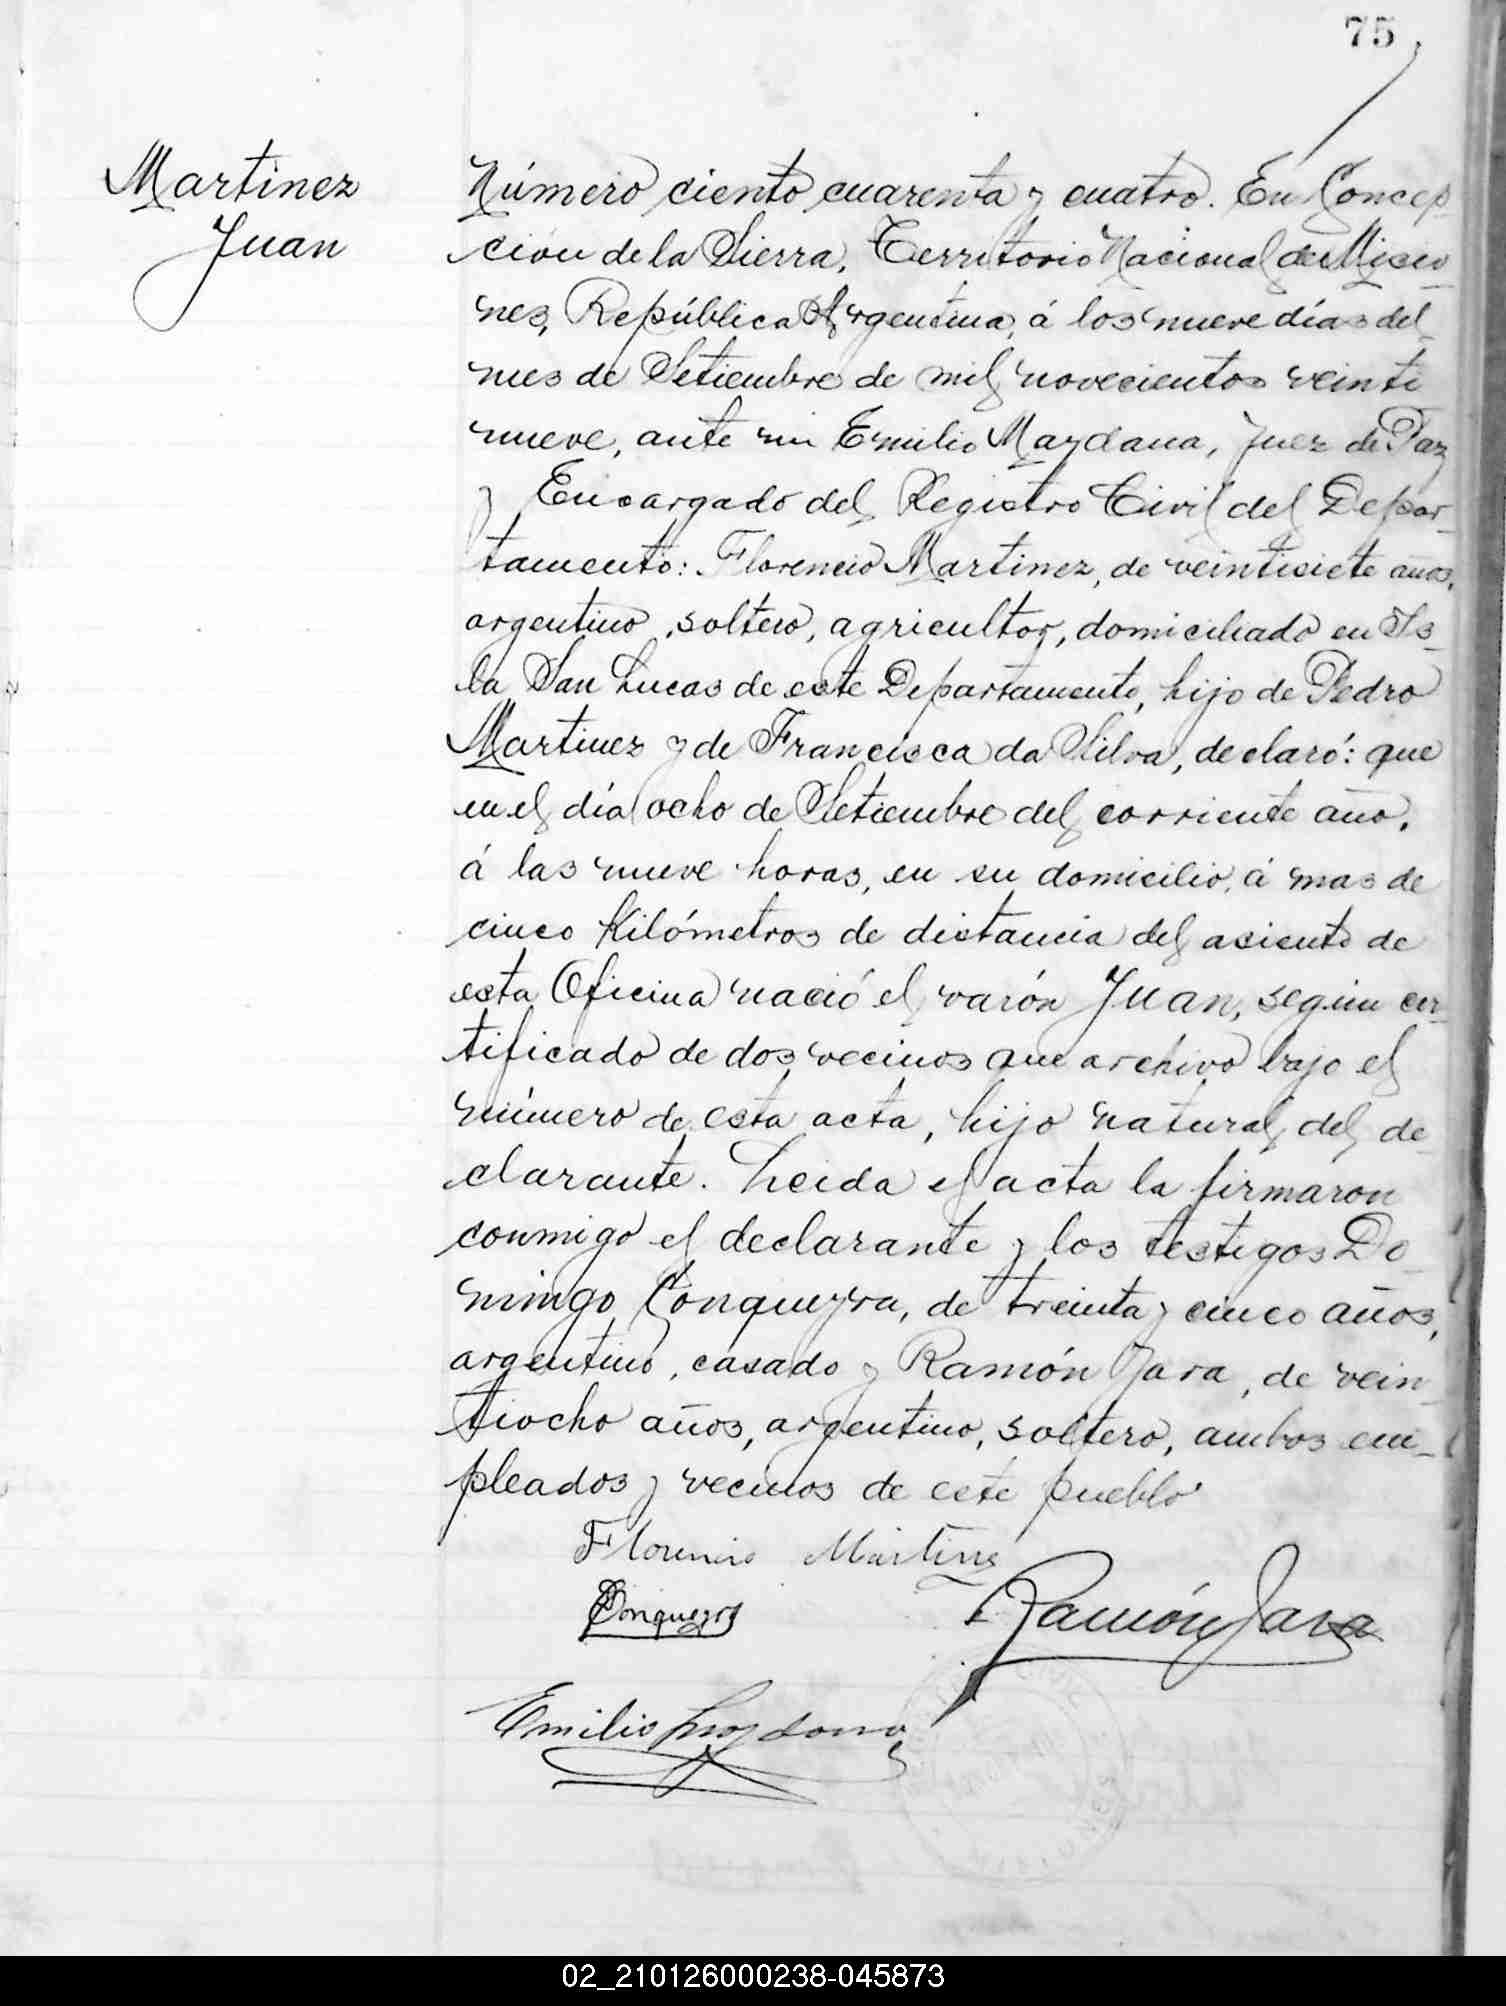 75
Martinez
Juan
Número ciento cuarenta y cuatro. En Concep-
ción de la Sierra, Territorio Nacional de Misio-
nes, República Argentina, á los nueve días del
mes de Setiembre de mil novecientos veinti
nueve, ante mi Emilio Maydana, Juez de Paz
y Encargado del Registro Civil del Depar-
tamento: Florencio Martinez, de veintisiete años,
argentino, soltero, agricultor, domiciliado en Is-
la San Lucas de este Departamento, hijo de Pedro
Martinez y de Francisca da Silva, declaró: que
en el día ocho de Setiembre del corriente año,
á las nueve horas, en su domicilio, á mas de
cinco Kilómetros de distancia del asiento de
esta Oficina nació el varón Juan, según cer-
tificado de dos vecinos que archivo bajo el
número de esta acta, hijo natural del de-
clarante. Leida el acta la firmaron
conmigo el declarante y los testigos Do-
mingo Conqueyra, de treinta y cinco años,
argentino, casado y Ramón Jara, de vein-
tiocho años, argentino, soltero, ambos em-
pleados y vecinos de este pueblo
Florencio Martinez
Ramón Jara
Emilio Maydana
02_210126000238-045873